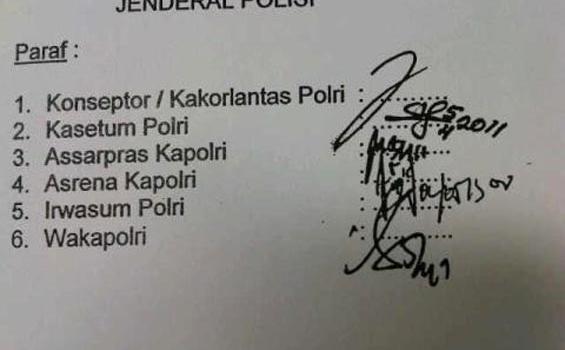 JENDERAL POLISI
Paraf :
1. Konseptor / Kakorlantas Polri :
2. Kasetum Polri :
3. Assarpras Kapolri :
4. Asrena Kapolri :
5. Irwasum Polri :
6. Wakapolri :
2011